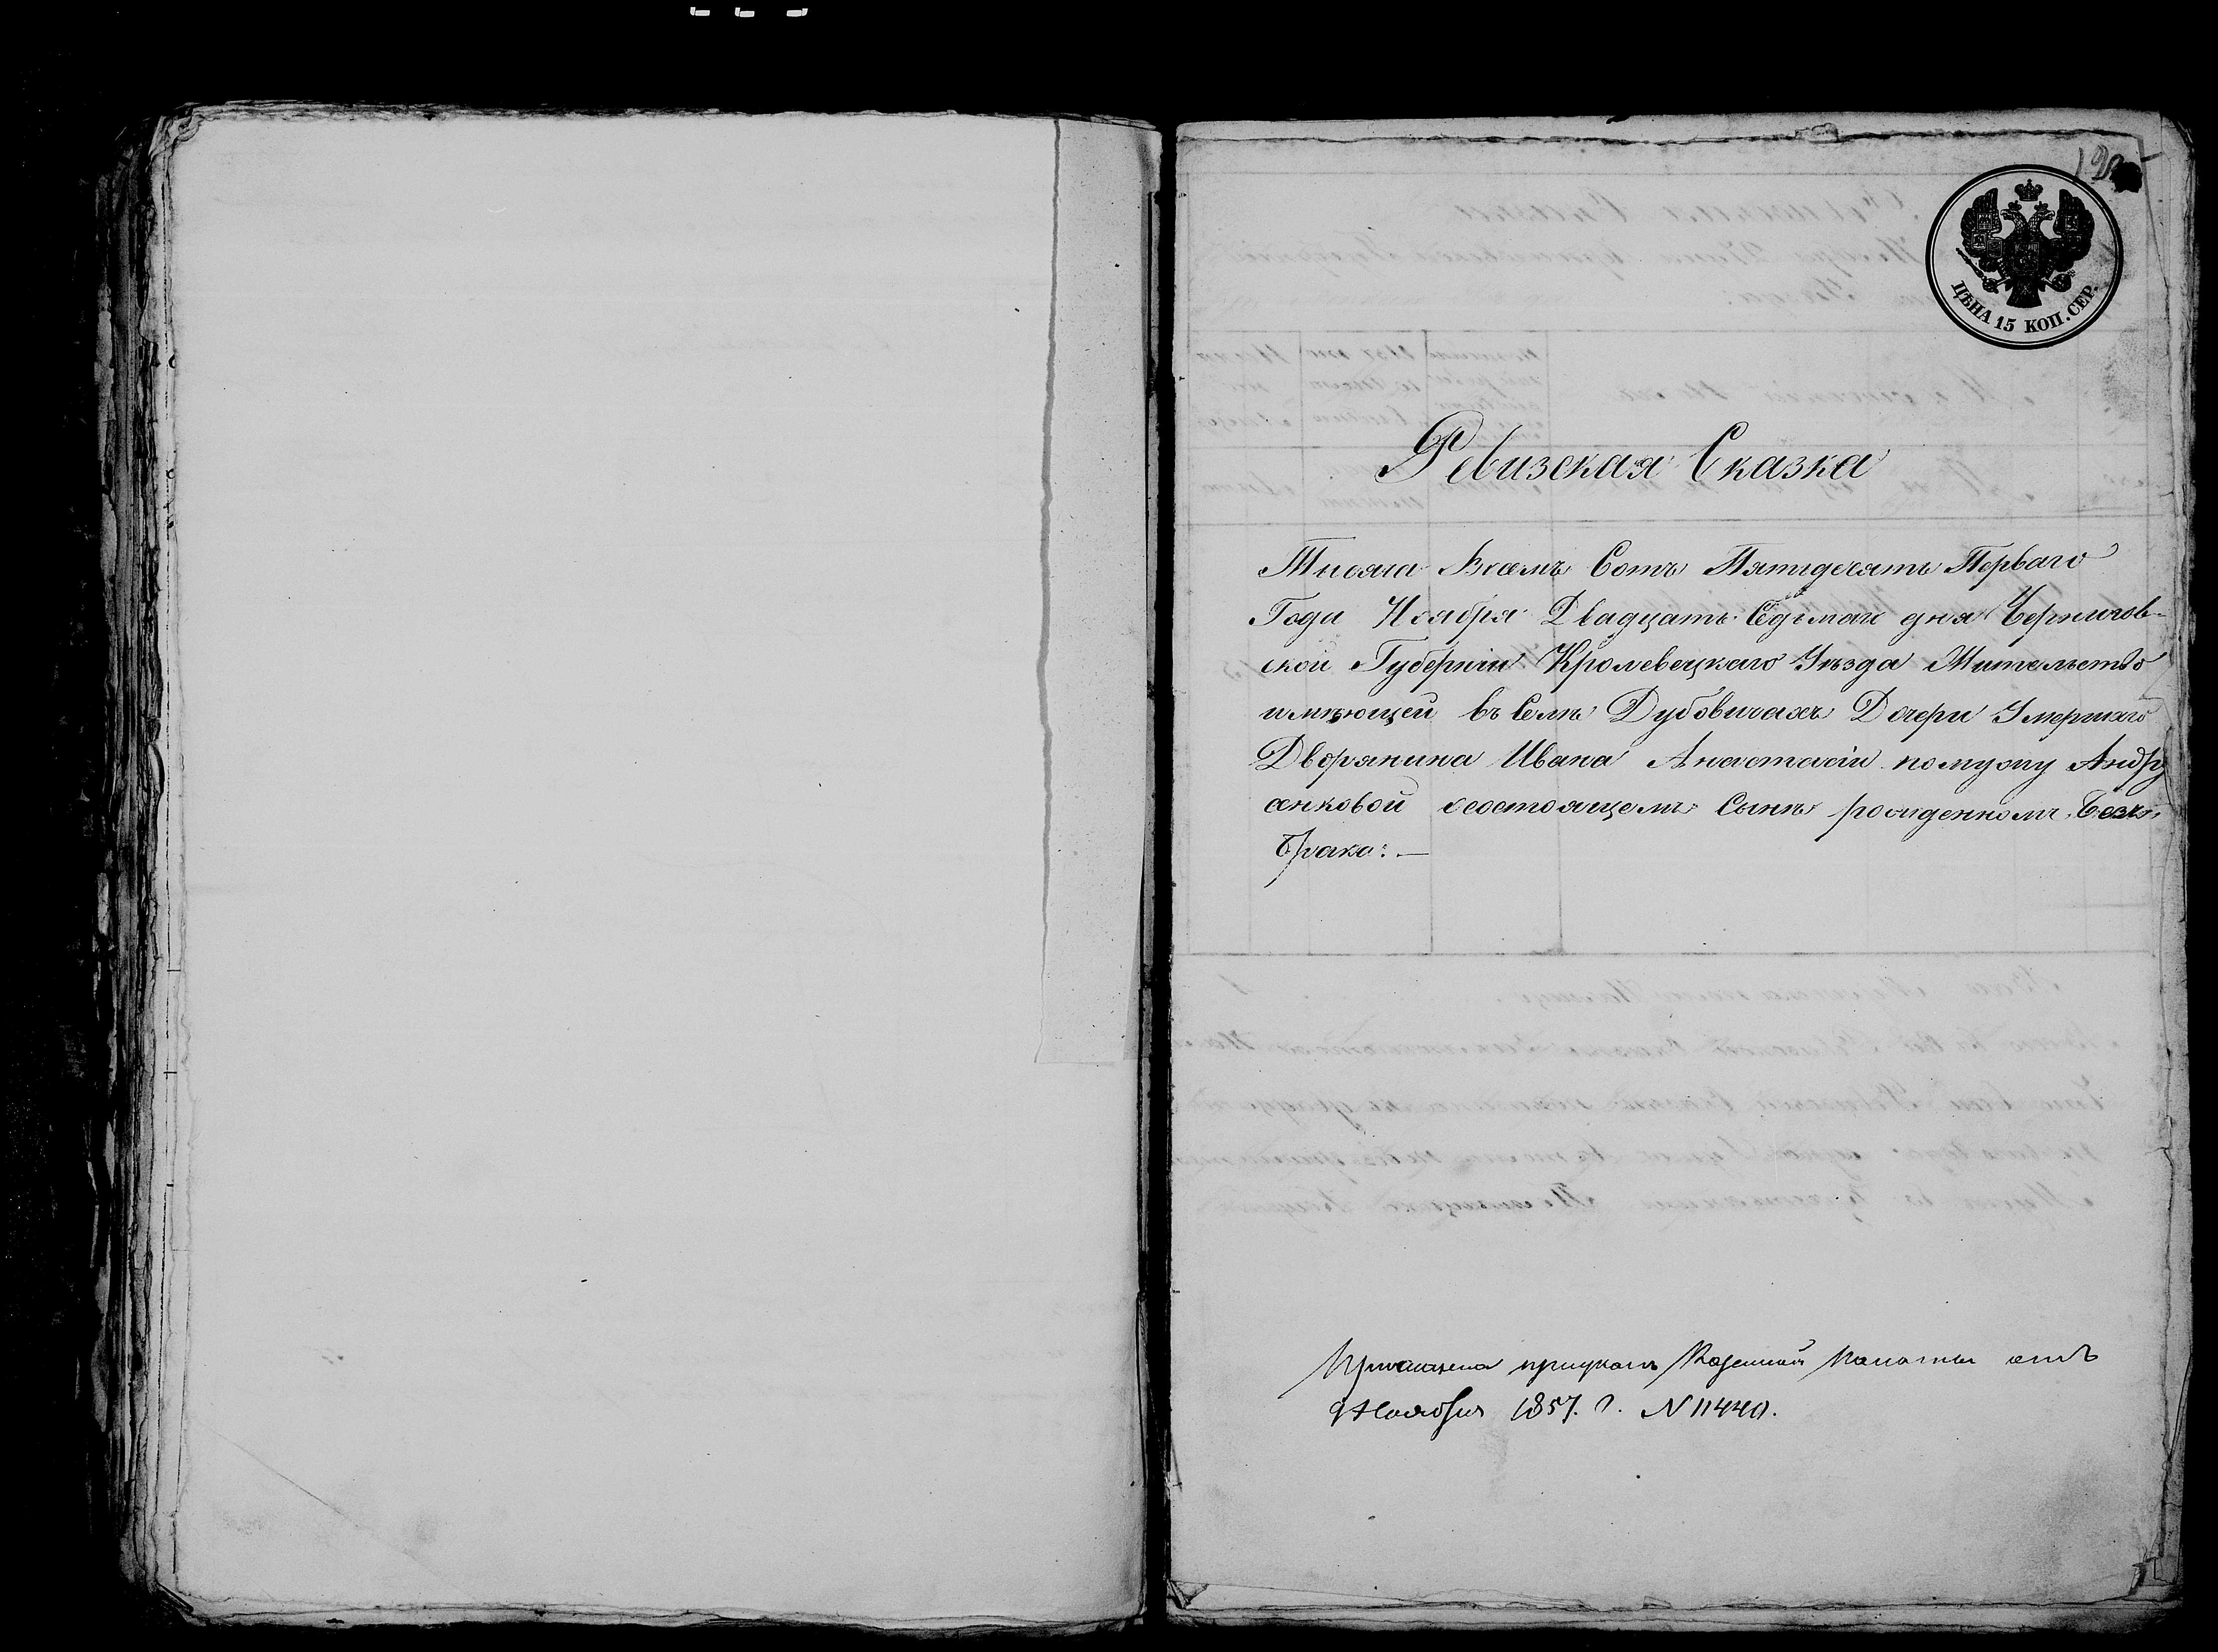 ЦѢНА 15 КОП. СЕР.
Ревизская Сказка
Тисяча Восемъ Сотъ Пятидесятъ Перваго
Года Ноября Двадцать Седьмаго дня Чернигов-
ской Губерніи Кролевецкаго Уѣзда Жительство
имѣющей въ Селѣ Дубовичахъ Дочери Умершаго
Дворянина Ивана Анастасіи по мужу Андру
сенковой состоящемъ Сынѣ рожденномъ Безъ
брака: —
при указѣ Казенной Палаты отъ
9 Ноября 1857. г. N 11440.